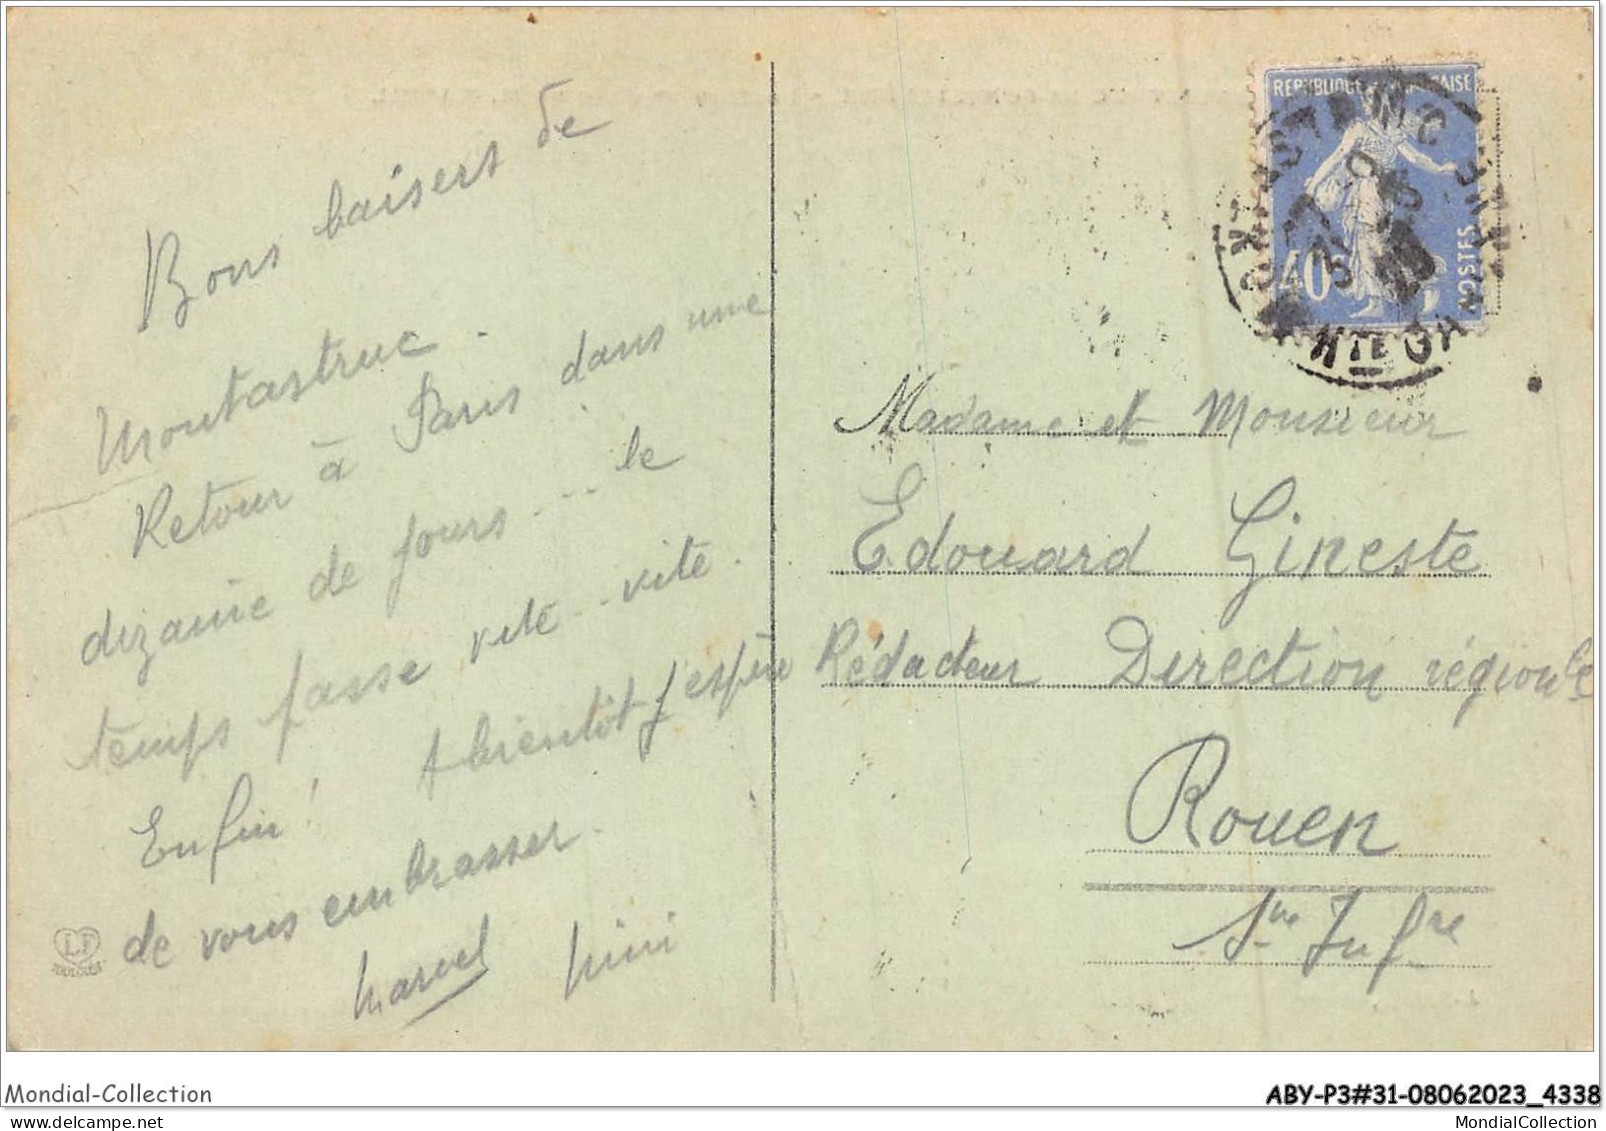 Bons baisers de
Montastruc.
Retour à Paris dans une
dizaine de jours... le
temps passe vite.. vite.
Enfin! A bientôt j'espère
de vous embrasser.
Marcel Mini
LF
TOULOUSE
REPUBLIQUE FRANCAISE
40
POSTES
HTE GARONNE
Madame et Monsieur
Edouard Gineste
Rédacteur Direction régionle
Rouen
Sne Infre
Mondial-Collection
ABY-P3#31-08062023_4338
www.delcampe.net
MondialCollection